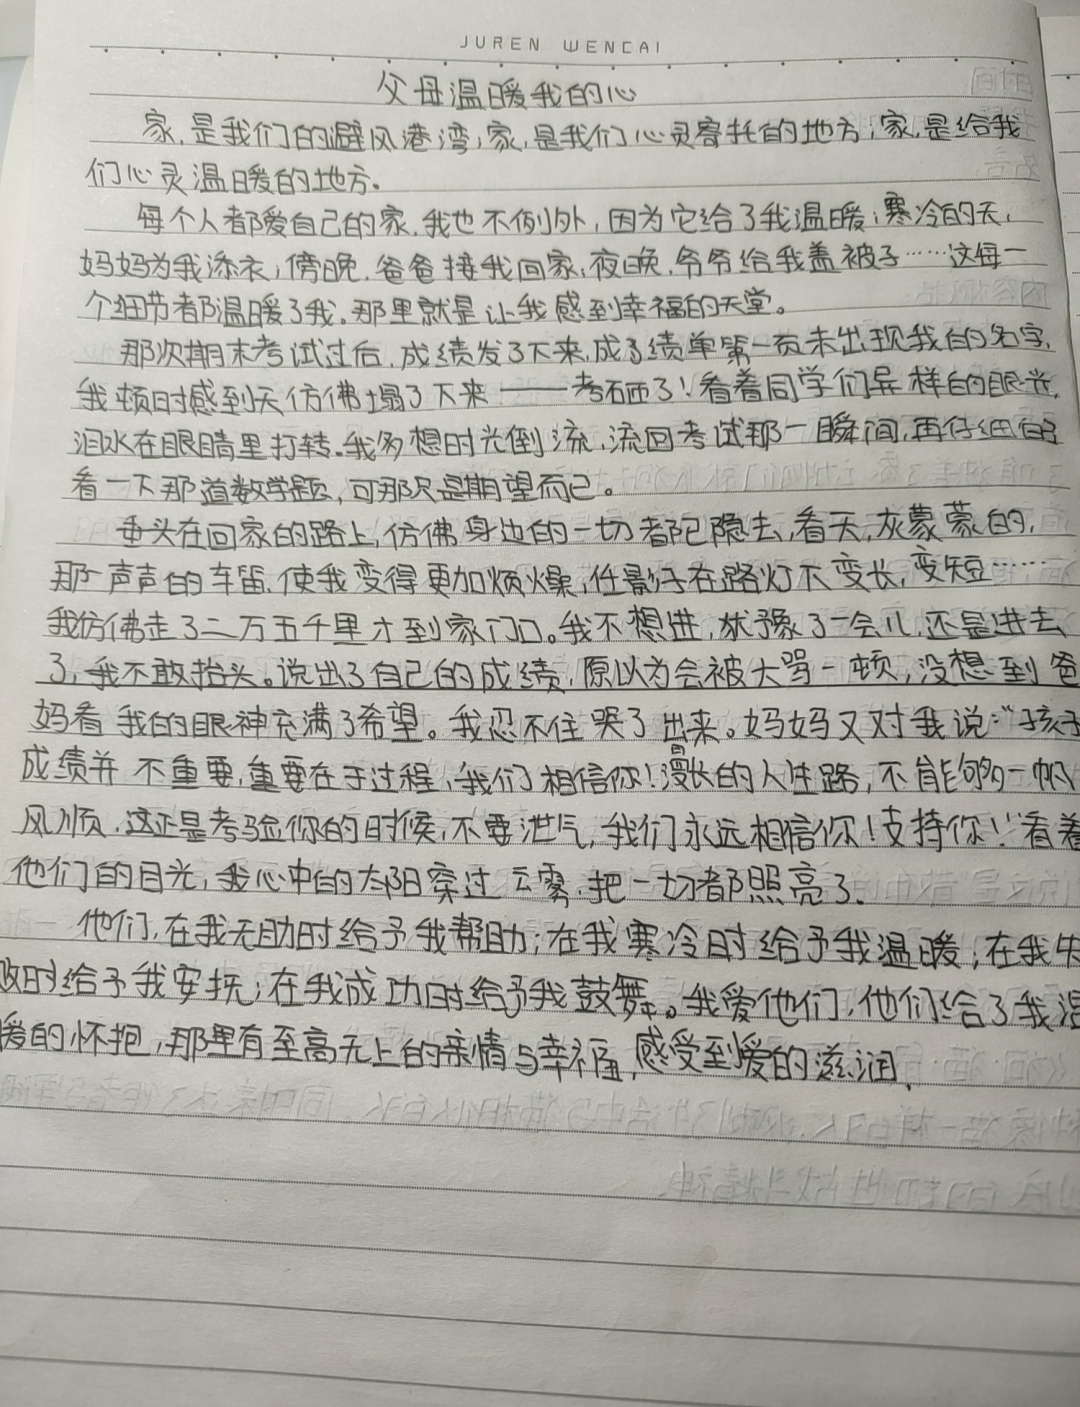 JUREN WENCAI
父母温暖我的心
家,是我们的避风港湾;家,是我们心灵寄托的地方;家,是给我
们心灵温暖的地方.
每个人都爱自己的家,我也不例外,因为它给了我温暖;寒冷的天,
妈妈为我添衣;傍晚,爸爸接我回家;夜晚,爷爷给我盖被子……这每一
个细节都温暖了我。那里就是让我感到幸福的天堂。
那次期末考试过后,成绩发了下来,成了绩单第一页未出现我的名字,
我顿时感到天仿佛塌了下来——考砸了!看着同学们异样的眼光,
泪水在眼睛里打转。我多想时光倒流,流回考试那一瞬间,再仔细的
看一下那道数学题,可那只是期望而已。
垂头在回家的路上,仿佛身边的一切都已隐去,看天,灰蒙蒙的,
那一声声的车笛,使我变得更加烦燥,任影子在路灯下变长,变短……
我仿佛走了二万五千里才到家门口。我不想进,犹豫了一会儿,还是进去
了,我不敢抬头。说出了自己的成绩,原以为会被大骂一顿,没想到爸
妈看我的眼神充满了希望。我忍不住哭了出来。妈妈又对我说:“孩子
成绩并不重要,重要在于过程,我们相信你!漫长的人生路,不能够一帆
风顺,这正是考验你的时候,不要泄气,我们永远相信你!支持你!”看着
他们的目光,我心中的太阳穿过云雾,把一切都照亮了.
他们,在我无助时给予我帮助;在我寒冷时给予我温暖;在我失
败时给予我安抚;在我成功时给予我鼓舞。我爱他们,他们给了我温
暖的怀抱,那里有至高无上的亲情与幸福,感受到爱的滋润.